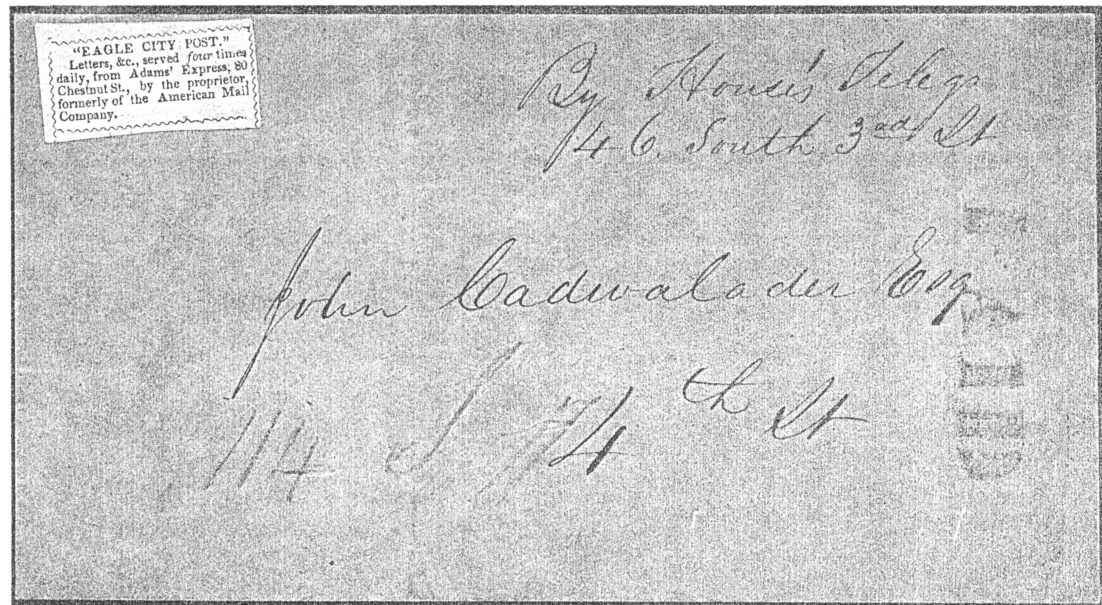 "EAGLE CITY POST."
Letters, &c., served four times
daily, from Adams' Express, 80
Chestnut St., by the proprietor,
formerly of the American Mail
Company.
By House's Telegr
46. South 3rd St
John Cadwalader Esq
114 S 4th St